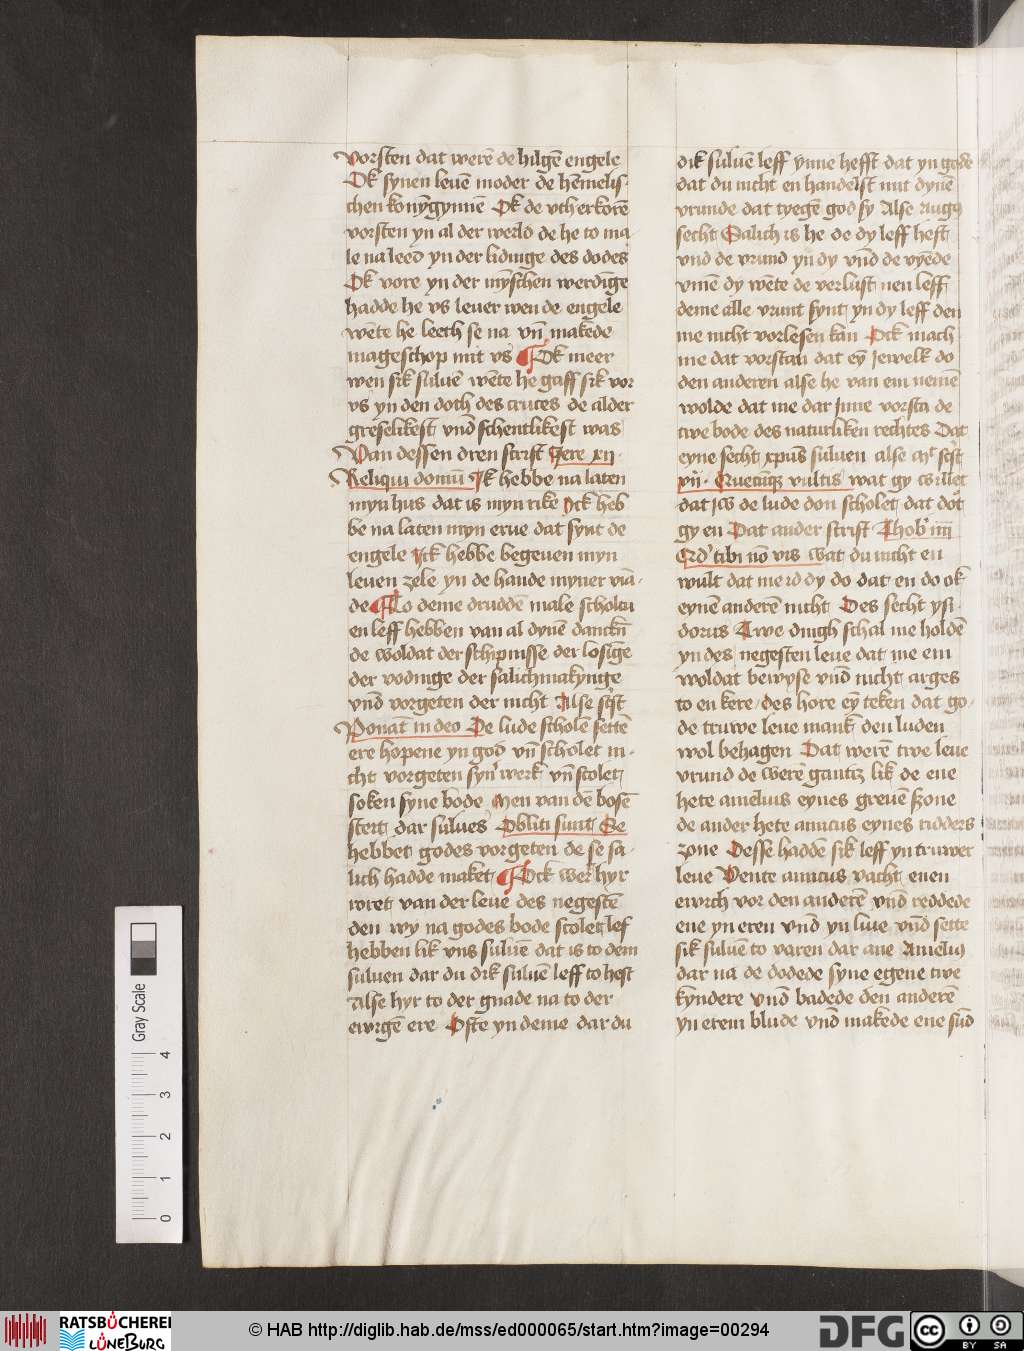 vorsten dat werē de hilgē engele
Ok synen leuē moder de hēmelis-
chen konȳgynnē Ok de vtherkorē
vorsten yn al der werld de he to ma
le na leed yn der lidinge des dodes
Ok vore yn der mȳschen werdīge
hadde he vs leuer wen de engele
wēte he leeth se na vn̄ makede
mageschop mit vs ¶ Ok meer
wen sik suluē wēte he gaff sik vor
vs yn den doth des cruces de alder
greselikest vnd schentlikest was
Van dessen dren scrift Jere xij
Reliqui domū Ik hebbe na laten
myn hus dat is myn rike Ick heb
be na laten myn erue dat synt de
engele Ick hebbe begeuen myn
leuen zele yn de hande myner viā-
de ¶ To deme druddē male scholtu
en leff hebben van al dynē danckn̄
de woldat der schipnisse der losīge
der vodinge der salichmakynge
vnd vorgeten der nicht Alse sc̄st
Ponāt in deo De lude scholē settē
ere hopene yn god vn̄ scholet ni-
cht vorgeten syn' werk vn̄ scolet
soken syne bode Men van dē bosē
stert dar sulues Obliti sunt Se
hebbet godes vorgeten de se sa-
lich hadde maket ¶ Ock wer hyr
wret van der leue des negestē
den wy na godes bode scolet lef
hebben lik vns suluē dat is to dem
suluen dar du dik suluē leff to hest
Alse hyr to der gnade na to der
ewigē ere Ofte yn deme dar du
dik suluē leff ynne hefft dat yn gode
dat du nicht en handelst mit dynē
vrunde dat tyegē god sy Alse Aug9
secht Salich is he de dy leff heft
vnd de vrund yn dy vnd de vyēde
vmē dy wēte de verlust nen leff
deme alle vrunt synt yn dy leff den
me nicht vorlesen kan Ock mach
me dat vorstan dat eȳ Jewelk do
den anderen alse he van em nemē
wolde dat me dar Jnne vorsta de
twe bode des naturliken rechtes Dat
eyne secht xpus suluen alse mc̄ sc̄st
vij Quecūq vultis wat gy willet
dat Jw de lude don scholet dat dot
gy en Dat ander scrift Thob' iiij
Qd' tibi nō vis wat du nicht en
wult dat me id dy do dat en do ok
eynē anderē nicht Des secht ysi-
dorus Twe dingh schal me holdē
yn des negesten leue dat me em
woldat bewyse vnd nicht arges
to en kere des hore eȳ teken dat go-
de truwe leue mank den luden
wol behagen Dat werē twe leue
vrund de werē gantz lik de ene
hete amelius eynes greuē szone
de ander hete amicus eynes ridders
zone Desse hadde sik leff yn truwer
leue Vente amicus vacht enen
ewich vor den anderē vnd reddede
ene yn eren vnd yn liue vnd sette
sik suluē to varen dar ane Ameli9
dar na de dodede syne egene twe
kyndere vnd badede den anderē
yn erem blude vnd makede ene sūd
Gray Scale
4
3
2
1
0
RATSBÜCHEREI
LÜNEBURG
© HAB http://diglib.hab.de/mss/ed000065/start.htm?image=00294
DFG
cc
BY SA